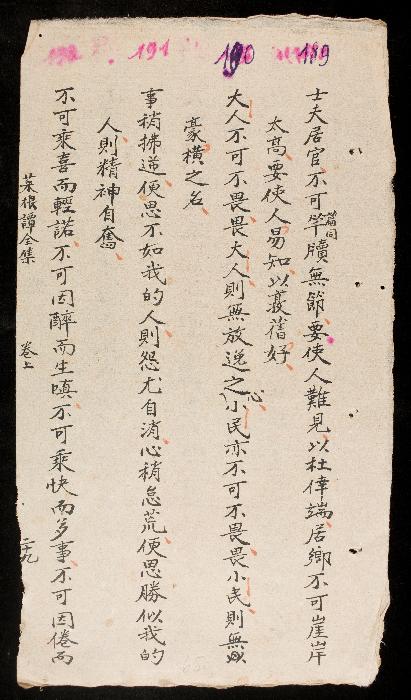 189
190
191
192
士夫居官不可竿牘無節要使人難見以杜倖端居鄉不可崖岸
篇同
太高要使人易知以敦舊好
大人不可不畏畏大人則無放逸之心小民亦不可不畏畏小民則無
豪橫之名
事稍拂逆便思不如我的人則怨尤自消心稍怠荒便思勝似我的
人則精神自奮
不可乘喜而輕諾不可因醉而生嗔不可乘快而多事不可因倦而
菜根譚全集
卷上
二十九